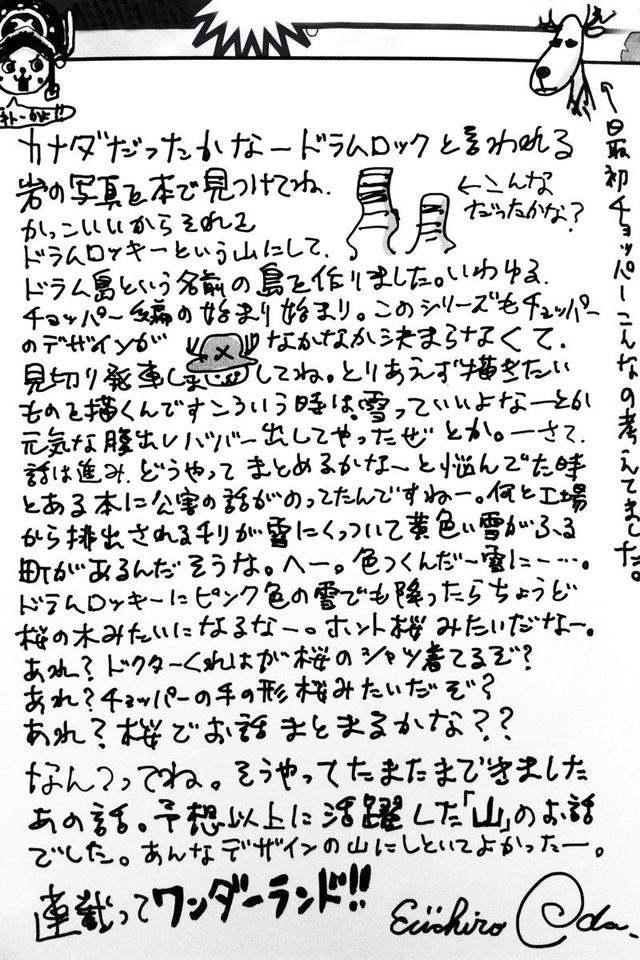 カナダだったかなードラムロックと言われる
岩の写真を本で見つけてね.
←こんな
だったかな?
かっこいいからそれを
ドラムロッキーという山にして.
ドラム島という名前の島を作りました。いわゆる.
チョッパー編の始まり始まり。このシリーズもチョッパー
のデザインが なかなか決まらなくて.
見切り発車しまじめしてね。とりあえず描きたい
ものを描くんですこういう時は、雪っていいよなーとか
元気な腹出しババァー出してやったぜ とか。ーさて.
話は進み. どうやって まとめるかな〜と悩んでた時
とある本に公害の話がのってたんですねー。何と工場
から排出されるチリが雪にくっついて黄色い雪がふる
町があるんだそうな。へー。色つくんだー雪にー…。
ドラムロッキーにピンク色の雪でも降ったらちょうど
桜の木みたいになるなー。ホント桜みたいだなー。
あれ? ドクターくれはが桜のシャツ着てるぞ?
あれ? チョッパーの手の形桜みたいだぞ?
あれ? 桜でお話まとまるかな??
なんつってね。そうやってたまたまできました
あの話。予想以上に活躍した「山」のお話
でした。あんなデザインの山にしといてよかったー。
連載ってワンダーランド!!
Eiichiro Oda.
←最初チョッパーこんなの考えてました。